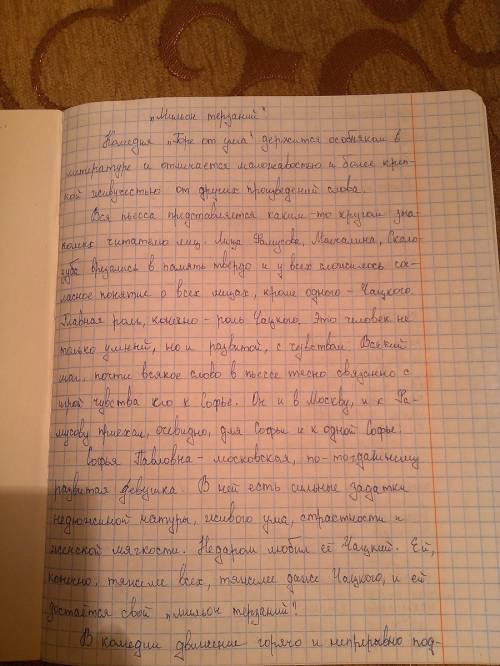 „Мильон терзаний"
Комедия „Горе от ума" держится особняком в
литературе и отличается моложавостью и более креп-
кой живучестью от других произведений слова.
Вся пьесса представляется каким-то кругом зна-
комых читателю лиц. Лица Фамусова, Молчалина, Скало-
зуба врезались в память твердо и у всех сложилось со-
гласное понятие о всех лицах, кроме одного - Чацкого.
Главная роль, конечно - роль Чацкого. Это человек не
только умный, но и развитой, с чувством. Всякий
шаг, почти всякое слово в пьессе тесно связанно с
игрой чувства его к Софье. Он и в Москву, и к Фа-
мусову приехал, очевидно, для Софьи и к одной Софье.
Софья Павловна - московская, по-тогдашнему
развитая девушка. В ней есть сильные задатки
недюжинной натуры, живого ума, страстности и
женской мягкости. Недаром любил её Чацкий. Ей,
конечно, тяжелее всех, тяжелее даже Чацкого, и ей
достаётся свой „мильон терзаний".
В комедии движение горячо и непрерывно под-